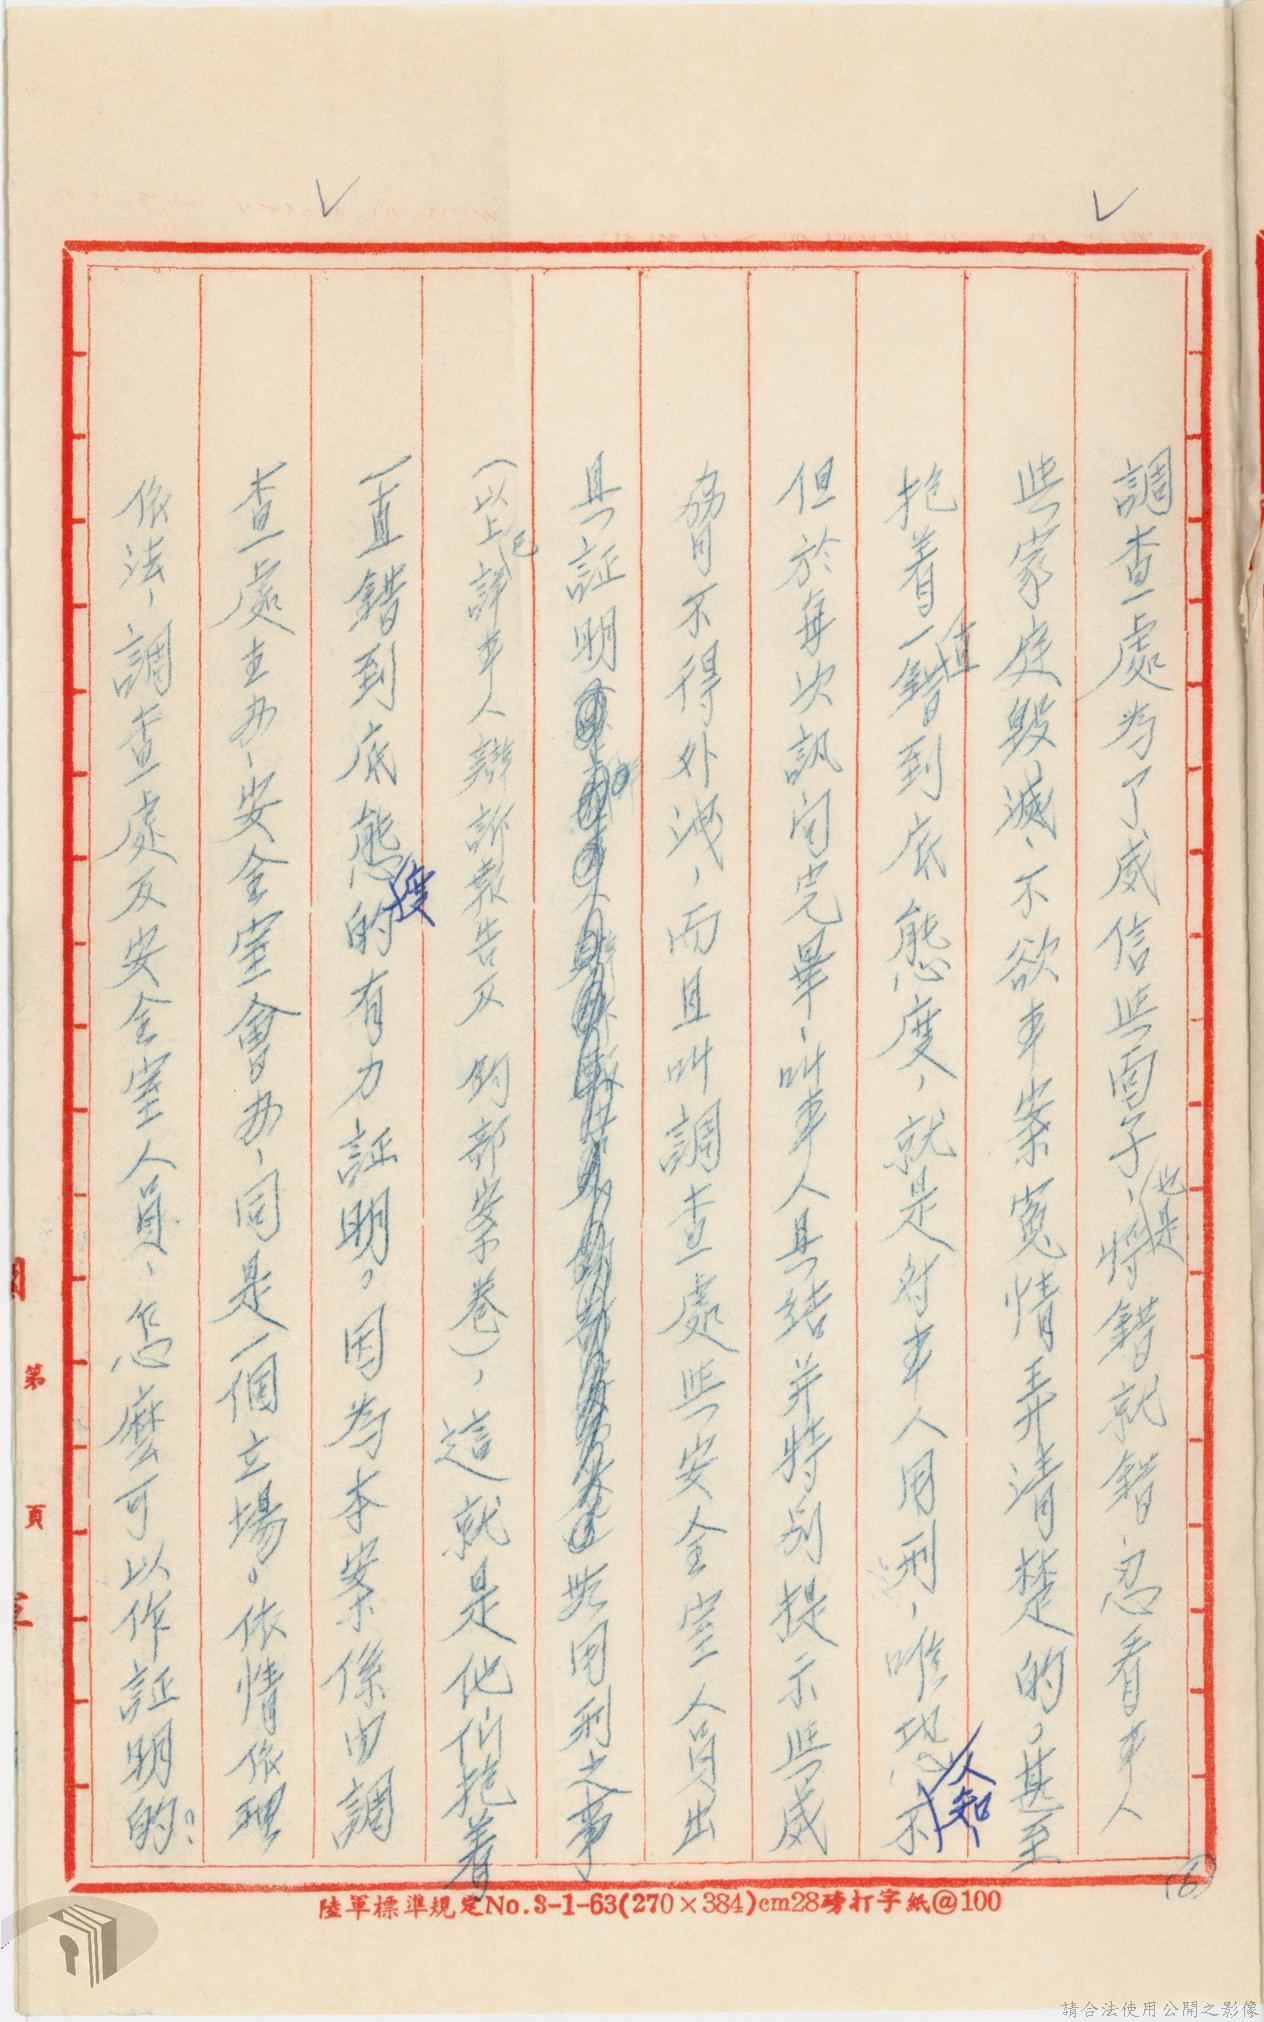 調查處為了威信些面子、也是將錯就錯、忍看本人
些家庭毀滅、不欲本案寃情弄清楚的。甚至
抱着一直錯到底態度，就是对本人用刑，唯恐人知、不
但於每次訊问完畢、叫本人具结并特别提示些威
脅不得外洩，而且叫調查處些安全室人員出
具証明 些用刑之事
(以上已詳本人辯訴報告及 鈞部案卷)，這就是他们抱着
一直錯到底態度的有力証明。因為本案係由調
查處主办、安全室會办、同是一個立場。依情依理
依法，調查處及安全室人員、怎麼可以作証明的？
(6)
第 頁
陸軍標準規定No.3-1-63(270×384)cm28磅打字紙@100
請合法使用公開之影像